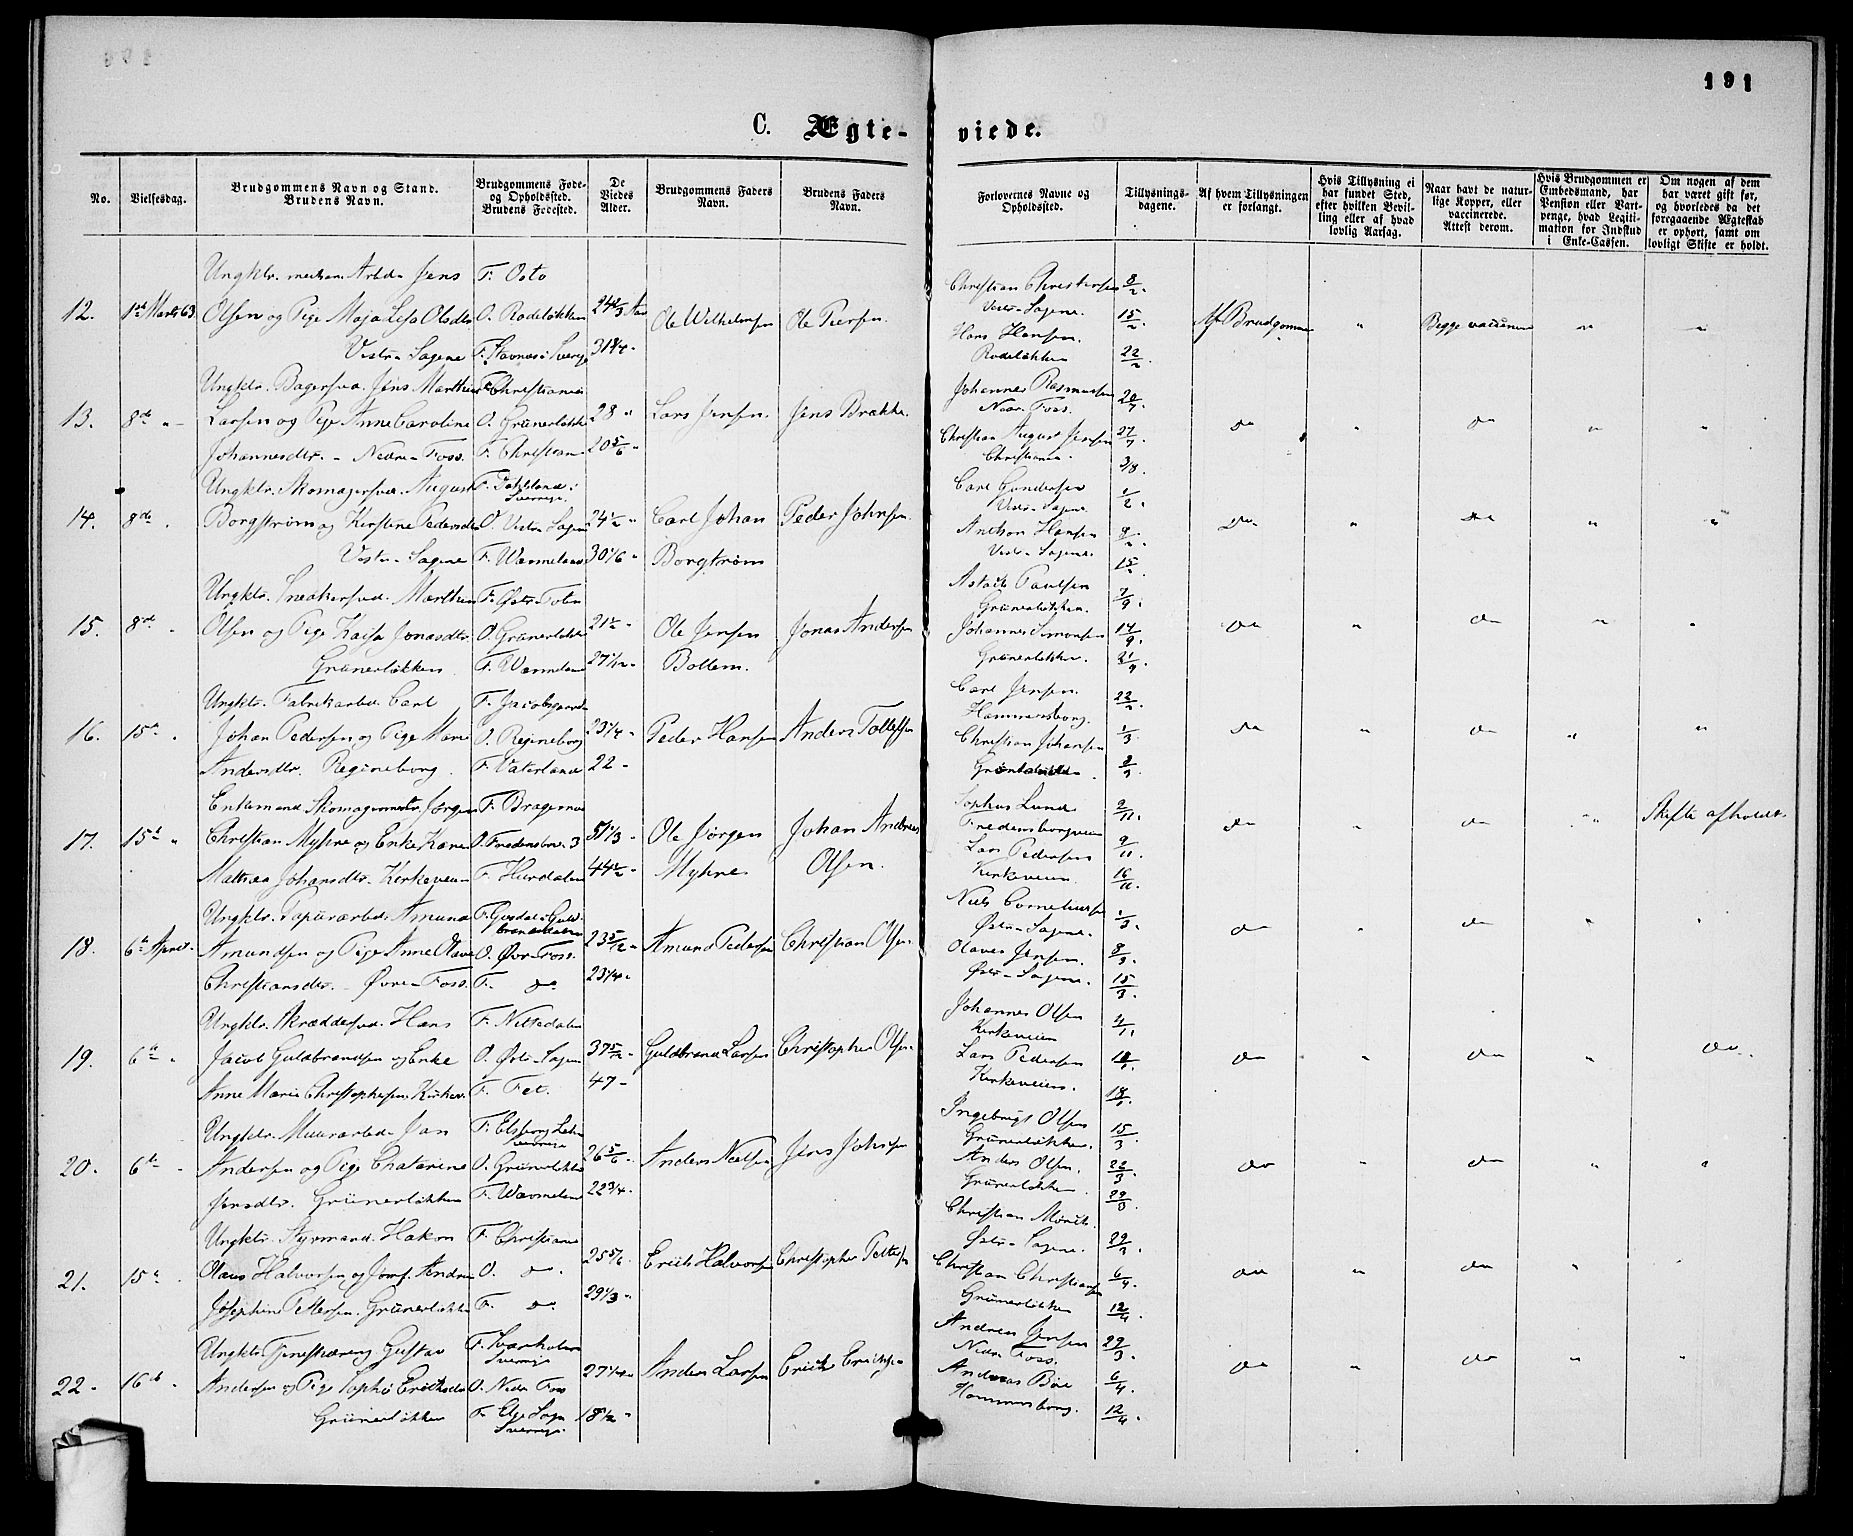 191
C. Ægte-viede.
No.
Vielsesdag.
Brudgommens Navn og Stand.
Brudens Navn.
Brudgommens Føde-
og Opholdssted.
Brudens Fødested.
De
Viedes
Alder.
Brudgommens Faders
Navn.
Brudens Faders
Navn.
Forlovernes Navne og
Opholdssted.
Tillysnings-
dagene.
Af hvem Tillysningen
er forlangt.
Hvis Tillysning ei
har fundet Sted,
efter hvilken Bevil-
ling eller af hvad
lovlig Aarsag.
Naar havt de natur-
lige Kopper, eller
vaccinerede.
Attest derom.
Hvis Brudgommen er
Embedsmand, har
Pension eller Vart-
penge, hvad Legiti-
mation for Indskud
i Enke-Cassen.
Om nogen af dem
har været gift før,
og hvorledes da det
foregaaende Ægteskab
er ophørt, samt om
lovligt Skifte er holdt.
Ungkbr. Arbd. Jens F: Oslo Christian Christensen 8/2
12. 1ste Marts 63. Olsen og Pige Maja Lisa Olsdtr O. Rodeløkken Ole Wilhelmsen Ole Persen. Vestre Sagene. 15/2 Af Brudgommen " Begge vaccinerede " "
Vestre Sagene F. Sverige 31 3/4 Hans Hansen. Rodeløkken 22/2
Ungkbr. Bagersvd. Jens Marthin F. Christiania Johannes Rasmussen
13. 8de " Larsen og Pige Anne Caroline O. Grünerløkken 28 " Lars Jensen. Jens Brække. Nedre Foss. do " do " "
Johannesdtr. - Nedre Foss. F. Christiania 20 5/6 " Christian August Jensen Christiania.
Ungkbr. Skomagersvd. August F. Sverige. Carl Gundersen 1/2
14. 8de " Borgstrøm og Kirstine Pedersdtr O. Vestre Sagene 24 1/2 " Carl Johan Peder Johnsen. Vestre Sagene do " do " "
Vestre Sagene F. Wærmeland 30 1/6 " Borgstrøm Anthon Hansen 8/2 Vestre Sagene. 15/2
Ungkbr. Snedkersvd. Marthin F. Østre Toten Paulsen Grünerløkken. 7/9
15. 8de " Olsen og Pige Kaisa Jonasdtr O. Grünerløkken 21 1/2 " Ole Jensen Jonas Andersen Johannes Simonsen 14/9 do " do " "
Grünerløkken F. Wærmeland 27 1/12 " Bollem. Grünerløkken. 21/9
Ungkbr. Fabrikarbd. Carl F. Carl Jensen. 22/2
16. 15de " Johan Pedersen og Pige Marie O. Regineborg 23 1/4 " Peder Hansen Anders Tollefsen Hammersborg. 1/3 do " do " "
Andersdtr. Regineborg. F. Vaterland 22 " Christian Johansen 8/3
Enkemand Skomagermstr. Jørgen F. Bragernæs Sophus Lund 2/11
17. 15de " Christian Myhre og Enke Karen O. Fredensborg 3 51 1/3 " Ole Jørgen Johan Andreas Fredensborgveien 9/11 do " do " Skifte afholdt.
Mathea Johansdtr. Kirkeveien F. Hurdalen 44 1/2 " Myhre Olsen. Lars Pedersen Kirkeveien. 16/11
Ungkbr. Papirarbd. Amund F. Gusdal i Guldbrandsdalen Niels Corneliussen 1/3
18. 6te April. Amundsen og Pige Anne Olava O. Øvre Foss. 23 5/12 " Amund Pedersen Christian Olsen Østre Sagene. do " do " "
Christiansdtr. - Øvre Foss. F. do 23 1/4 " Olaves Jensen. 8/3 Østre Sagene. 15/3
Ungkbr. Skræddersvd. Hans F. Nittedalen Johannes Olsen 4/1
19. 6te " Jacob Guldbrandsen og Enke O. Østre Sagene 37 5/12 " Guldbrand Larsen Christopher Olsen Kirkeveien do " do " do.
Anne Marie Christophersen Kirkev. F. Fet. 47 " Lars Pedersen Kirkeveien. 18/1
Ungkbr. Murarbd. Jan F. Elfsborg Sverrige Ingebrigt Olsen 15/3
20. 6te " Andersen og Pige Chatarine O. Grünerløkken 26 5/6 " Anders Nielsen Jens Johnsen Grünerløkken. do " do " "
Jensdtr. Grünerløkken F. Wærmeland 22 3/4 " Anders Olsen. 22/3 Grünerløkken 29/3
Ungkbr. Styrmand. Hakon F. Christiania Christian Østre Sagene. 29/3
21. 15de " Olaus Halvorsen og Jomf. Andrea O. do. 25 5/6 " Erich Halvorsen Christopher Pettersen Christian Christiansen 6/4 do " do " "
Josephine Pettersen. Grünerløkken F. do 29 1/3 " Grünerløkken 12/4
Ungkbr. Gustav F. Sverrige Andreas Jensen 29/3
22. 16de " Andersen og Pige Sophie Ericksdtr O. Nedre Foss 27 1/4 " Anders Larsen Erick Ericksen Nedre Foss. do " do " "
Grünerløkken F. Sverrige. 18 1/2 " Andreas Bøe 6/4 Hammersborg. 12/4